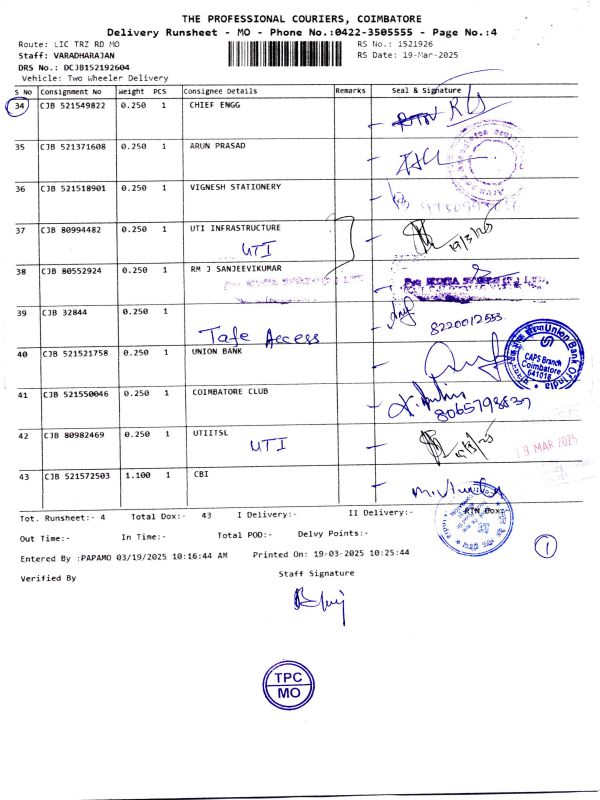 THE PROFESSIONAL COURIERS, COIMBATORE
Delivery Runsheet - MO - Phone No.:0422-3505555 - Page No.:4
Route: LIC TRZ RD MO RS No.: 1521926
Staff: VARADHARAJAN RS Date: 19-Mar-2025
DRS No.: DCJB152192604
Vehicle: Two Wheeler Delivery
S No Consignment No Weight PCS Consignee Details Remarks Seal & Signature
34 CJB 521549822 0.250 1 CHIEF ENGG
35 CJB 521371608 0.250 1 ARUN PRASAD
36 CJB 521518901 0.250 1 VIGNESH STATIONERY
37 CJB 80994482 0.250 1 UTI INFRASTRUCTURE
UTI 19/3/25
38 CJB 80552924 0.250 1 RM J SANJEEVIKUMAR
39 CJB 32844 0.250 1
Tafe Access 8220012553
40 CJB 521521758 0.250 1 UNION BANK
Union Bank Of India
CAPS Branch
Coimbatore
641018
41 CJB 521550046 0.250 1 COIMBATORE CLUB
42 CJB 80982469 0.250 1 UTIITSL
UTI 19 MAR 2025
43 CJB 521572503 1.100 1 CBI
Tot. Runsheet:- 4 Total Dox:- 43 I Delivery:- II Delivery:- RTN Dox:
Out Time:- In Time:- Total POD:- Delvy Points:-
1
Entered By :PAPAMO 03/19/2025 10:16:44 AM Printed On: 19-03-2025 10:25:44
Verified By Staff Signature
TPC
MO